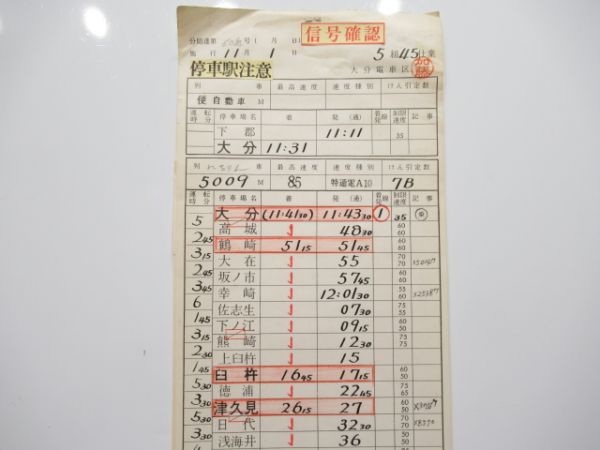 信号確認
分関達第 号(  月  日)
施行 11月 1日 5組45仕業
停車駅注意
大分電車区
列 車 最高速度 速度種別 けん引定数
便自動車 M
運転時分 停車場名 着 発(通) 着発線 制限速度 記事
下郡 11:11 35
大分 11:31
列 車 最高速度 速度種別 けん引定数
5009 M 85 特通電A10 7B
運転時分 停車場名 着 発(通) 着発線 制限速度 記事
大分 (11:41 30) 11:43 30 1 35
5
高城 48 30 60 60
2 45
鶴崎 51 15 51 45 60 60
3 15
大在 55 70 70
2 45
坂ノ市 57 45 60 60
3 45
幸崎 12:01 30 55 60
6
佐志生 07 30 60 50
1 45
下ノ江 09 15 60 70
3 15
熊崎 12 30 75 75
2 30
上臼杵 15
1 45
臼杵 16 45 17 15 60 50
5 30
徳浦 22 45 75 65
3 30
津久見 26 15 27 60 50
5 30
日代 32 30 60 50 X8370
3 30
浅海井 36